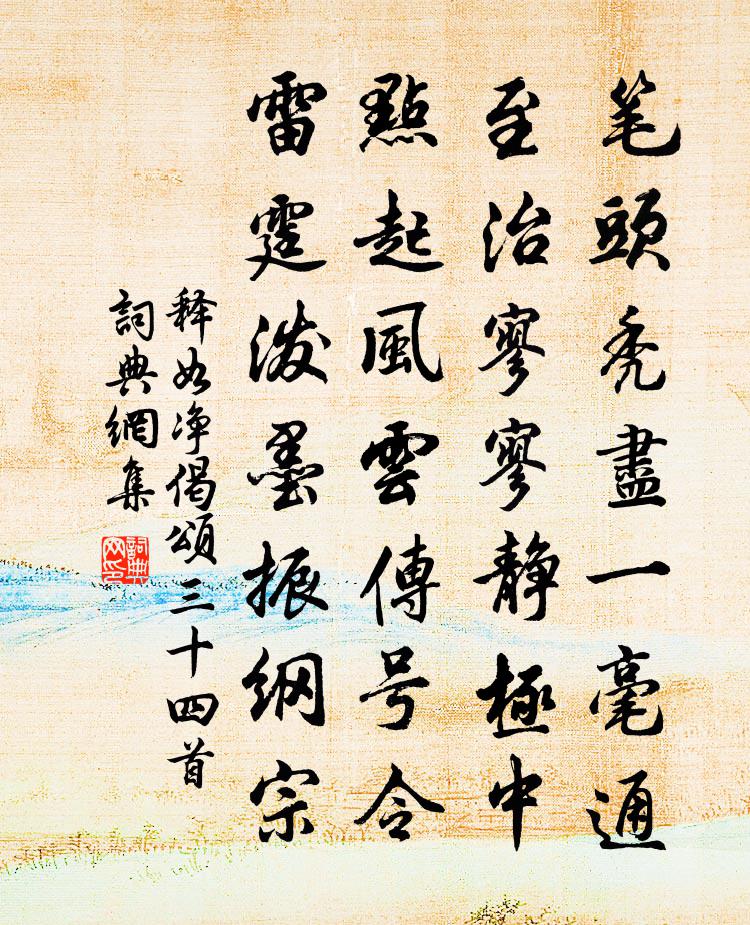 笔頭禿盡一毫通
至治寥寥静極中
點起風雲傳号令
雷霆潑墨振纲宗
释如净偈頌三十四首
詞典網集
詞典网印